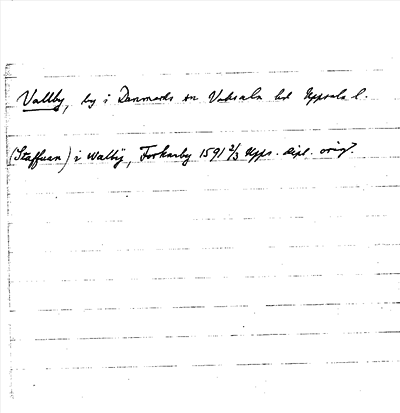 Vallby, by i Danmarks sn Vaksala hd Uppsala l.
(Staffuan) i Walby, Forkarby 1591 3/3 Upps. dipl. orig.